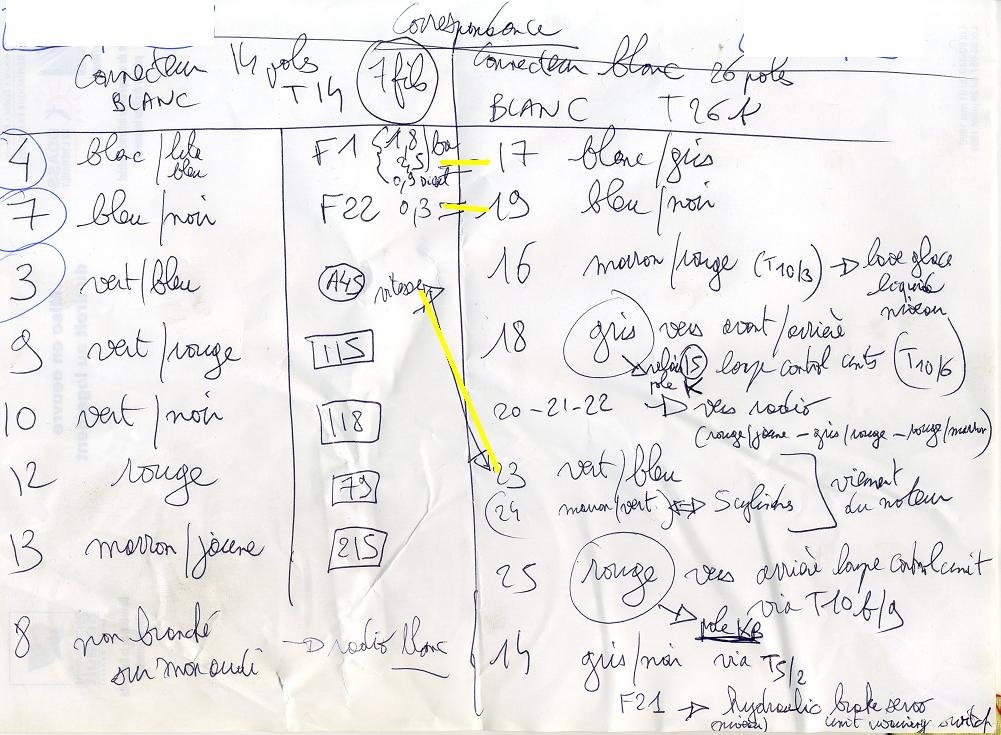 Correspondance
Connecteur 14 poles
BLANC T14
7 fils
Connecteur blanc 26 poles
BLANC T26k
4 blanc/lila bleu
F1 1,8
2,5
0,9 Diesel
17 blanc/gris
7 bleu/noir F22 0,3
19 bleu/noir
3 vert/bleu A45 vitesse
16 marron/rouge (T10/3) → lave glace
liquide
niveau
9 vert/rouge 115
18 gris vers avant/arrière
relais 15 lampe control (T10/6)
pole K
10 vert/noir 118
20-21-22 → vers radio
(rouge/jaune - gris/rouge - rouge/marron)
12 rouge 79
23 vert/bleu
24 marron/vert ↔ 5 cylindres
viennent
du moteur
13 marron/jaune 215
25 rouge vers arrière lampe control unit
via T10 b/9
8 non branché
sur mon audi
→ radio blanc
14 gris/noir via T5/2
F21 → hydraulic brake servo
(niveau) unit warning switch